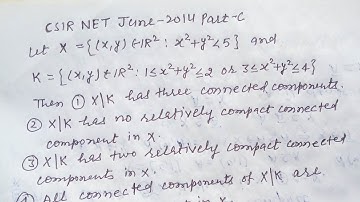 CSIR NET June-2014 Part-C
Let X = {(x,y) ∈ IR² : x²+y²<5} and
K = {(x,y) ∈ IR² : 1≤x²+y²≤2 or 3≤x²+y²≤4}
Then ① X|K has three connected components.
② X|K has no relatively compact connected
component in X.
③ X|K has two relatively compact connected
components in X.
④ All connected components of X|K are